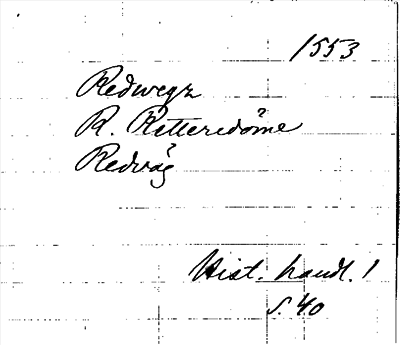 1553
Redwegz
R. Rettersdöme
Redvåg
Hist. handl. 1
s. 40